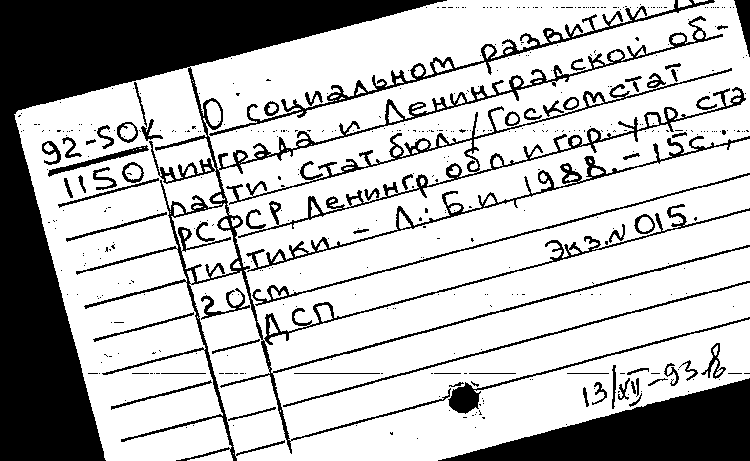 92-5OK
1150
О социальном развитии Ле-
нинграда и Ленинградской об-
ласти: Стат. бюл. / Госкомстат
РСФСР, Ленингр. обл. и гор. упр. ста
тистики. - Л.: Б.и., 1988. - 15с.;
20см
Экз. N 015.
ДСП
13/XII-93